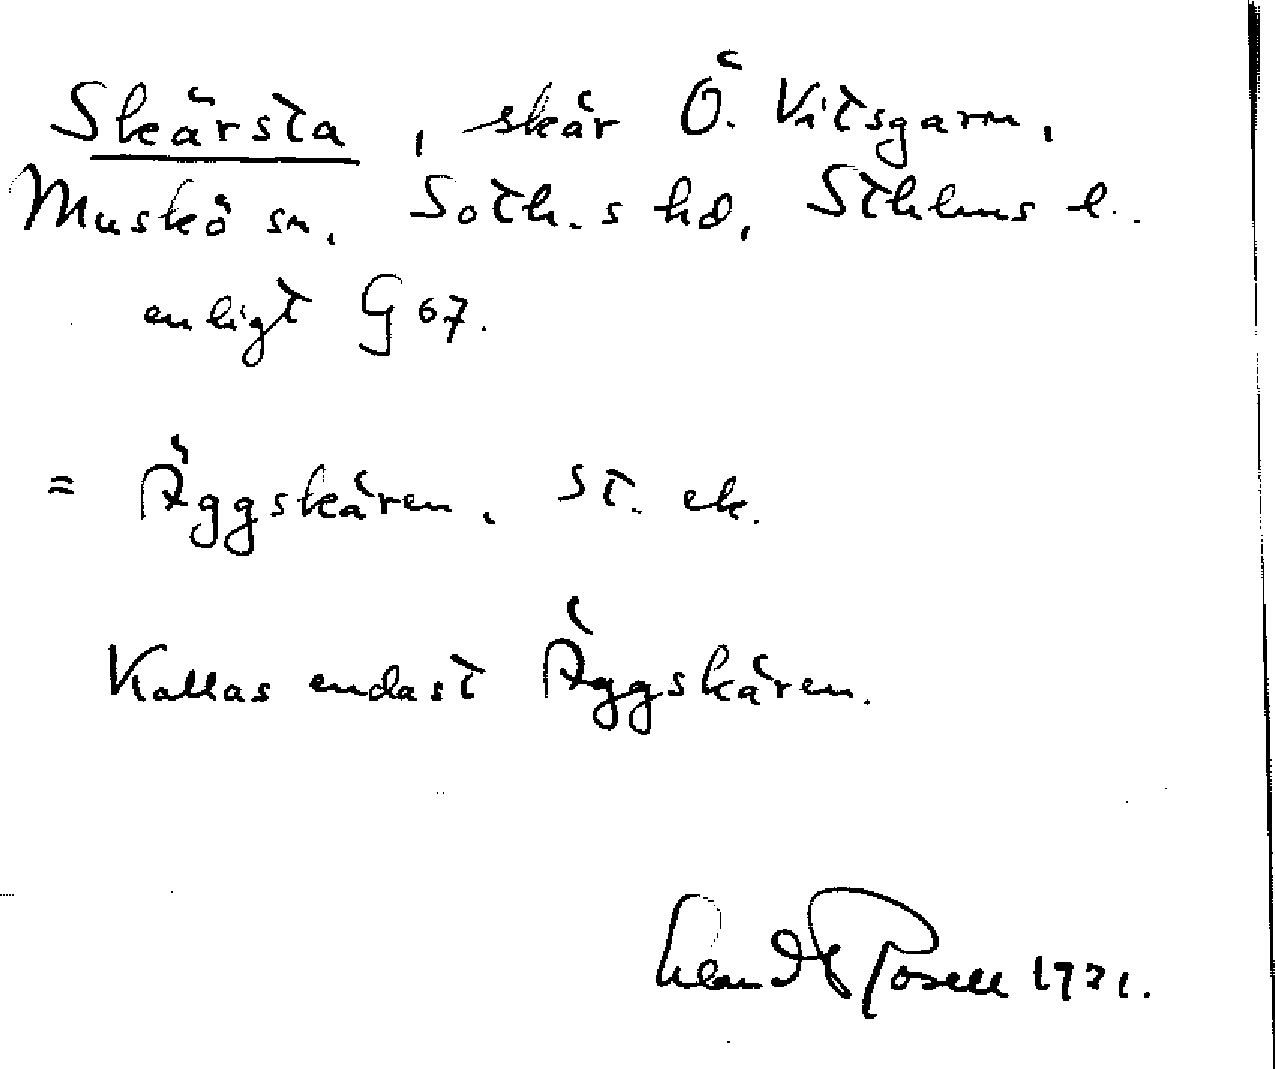 Skärsta, skär Ö. Vitsgarn,
Muskö sn, Soth.s hd, Sthlms l.
enligt G 67.
= Äggskären, st. ek.
Kallas endast Äggskären.
Rosell 1921.